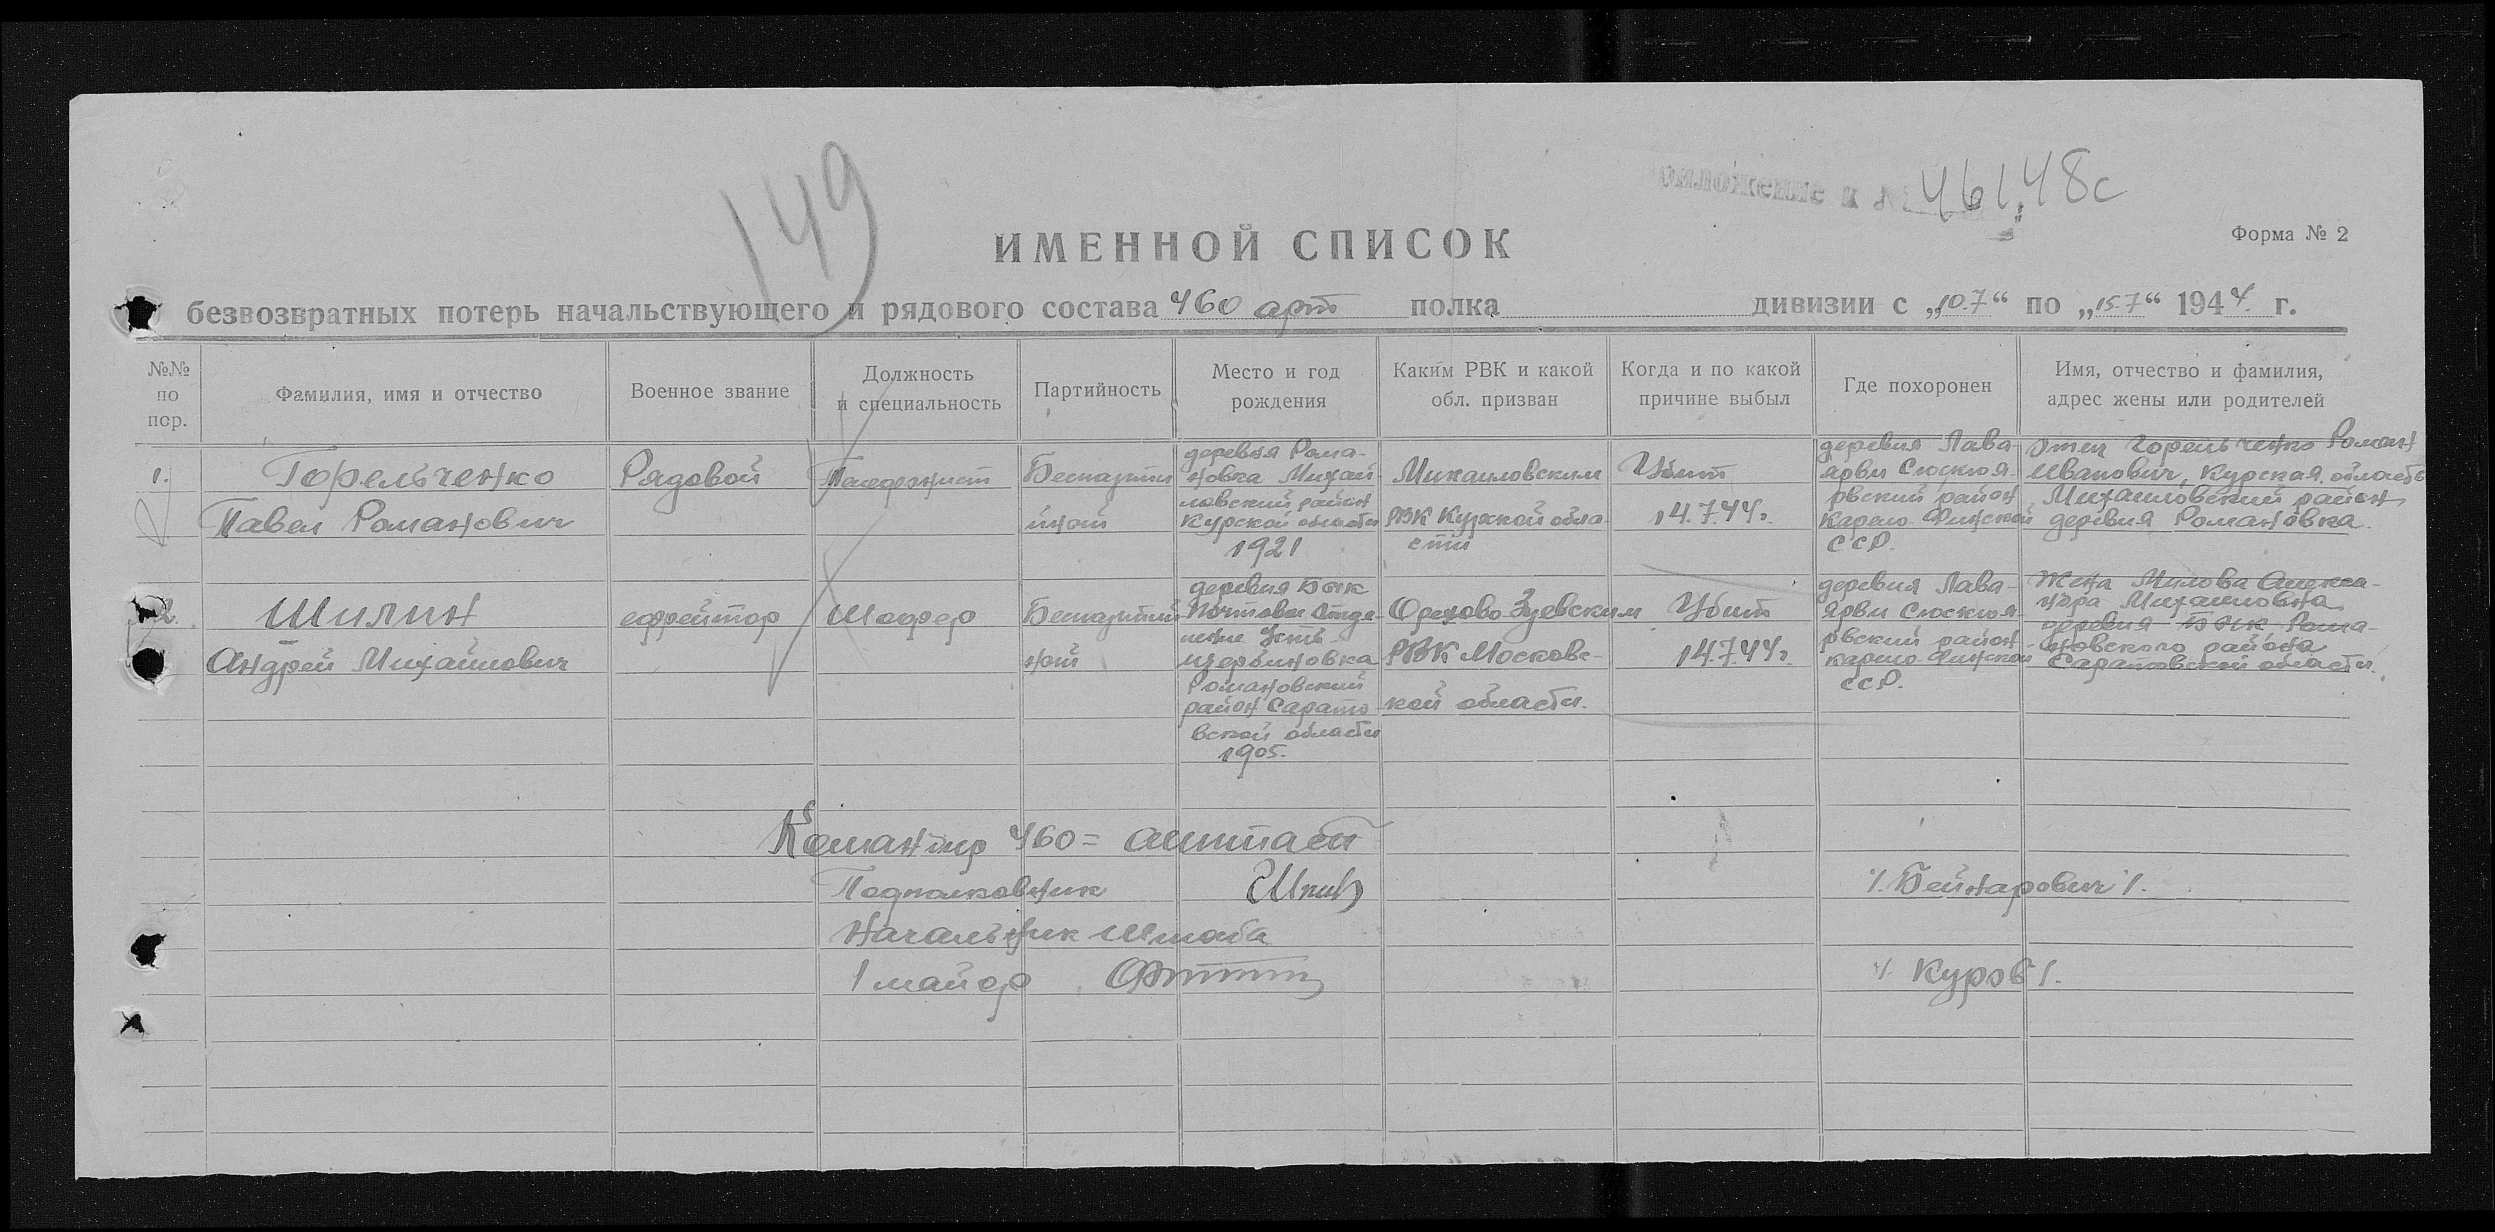 149
Приложение к № 46148с
Форма № 2
ИМЕННОЙ СПИСОК
безвозвратных потерь начальствующего и рядового состава 460 арт полка дивизии с „10.7“ по „15.7“ 1944 г.
№№ по пор.
Фамилия, имя и отчество
Военное звание
Должность и специальность
Партийность
Место и год рождения
Каким РВК и какой обл. призван
Когда и по какой причине выбыл
Где похоронен
Имя, отчество и фамилия, адрес жены или родителей
1.
Горельченко
Павел Романович
Рядовой
Телефонист
Беспартий
йный
деревня Рома-
новка Михай-
ловский район
Курской области
1921
Михаиловским
РВК Курской обла
сти
Убит
14.7.44г.
деревня Лава-
ярви Сюскюя-
рвский район
Карело-Финской
ССР.
отец Горельченко Роман
Иванович, Курская область
Михаиловский район
деревня Романовка.
2.
Шилин
Андрей Михайлович
ефрейтор
Шофер
Беспартий
ный
деревня
Почтовое Отде-
ление Усть
Щербиновка
Романовский
район Сарато-
вской области
1905.
Орехово-Зуевским
РВК Московс-
кой области.
Убит
14.7.44г
деревня Лава-
Ярви Сюскюя-
рвский район
Карело-Финской
ССР.
Жена Милова Алекса-
ндра Михаиловна
деревня Рома-
новского района
Саратовской области.
Командир 460-
Подполковник
/.Бейнарович/.
Начальник штаба
/майор
/. Куров/.